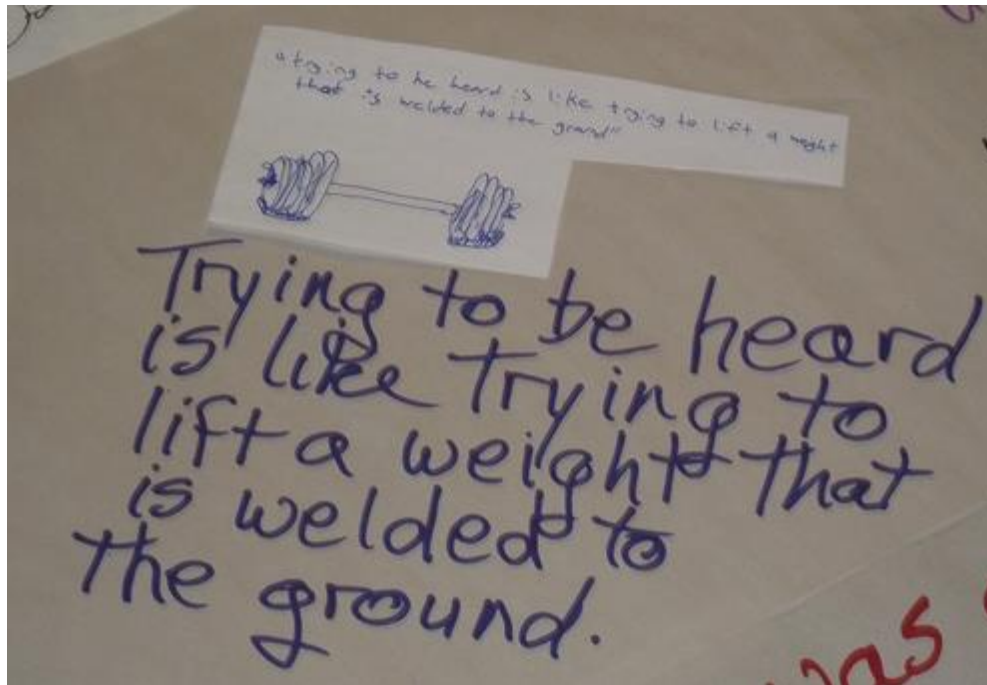 "trying to be heard is like trying to lift a weight
that is welded to the ground"
Trying to be heard
is like Trying to
lift a weight that
is welded to
the ground.
was